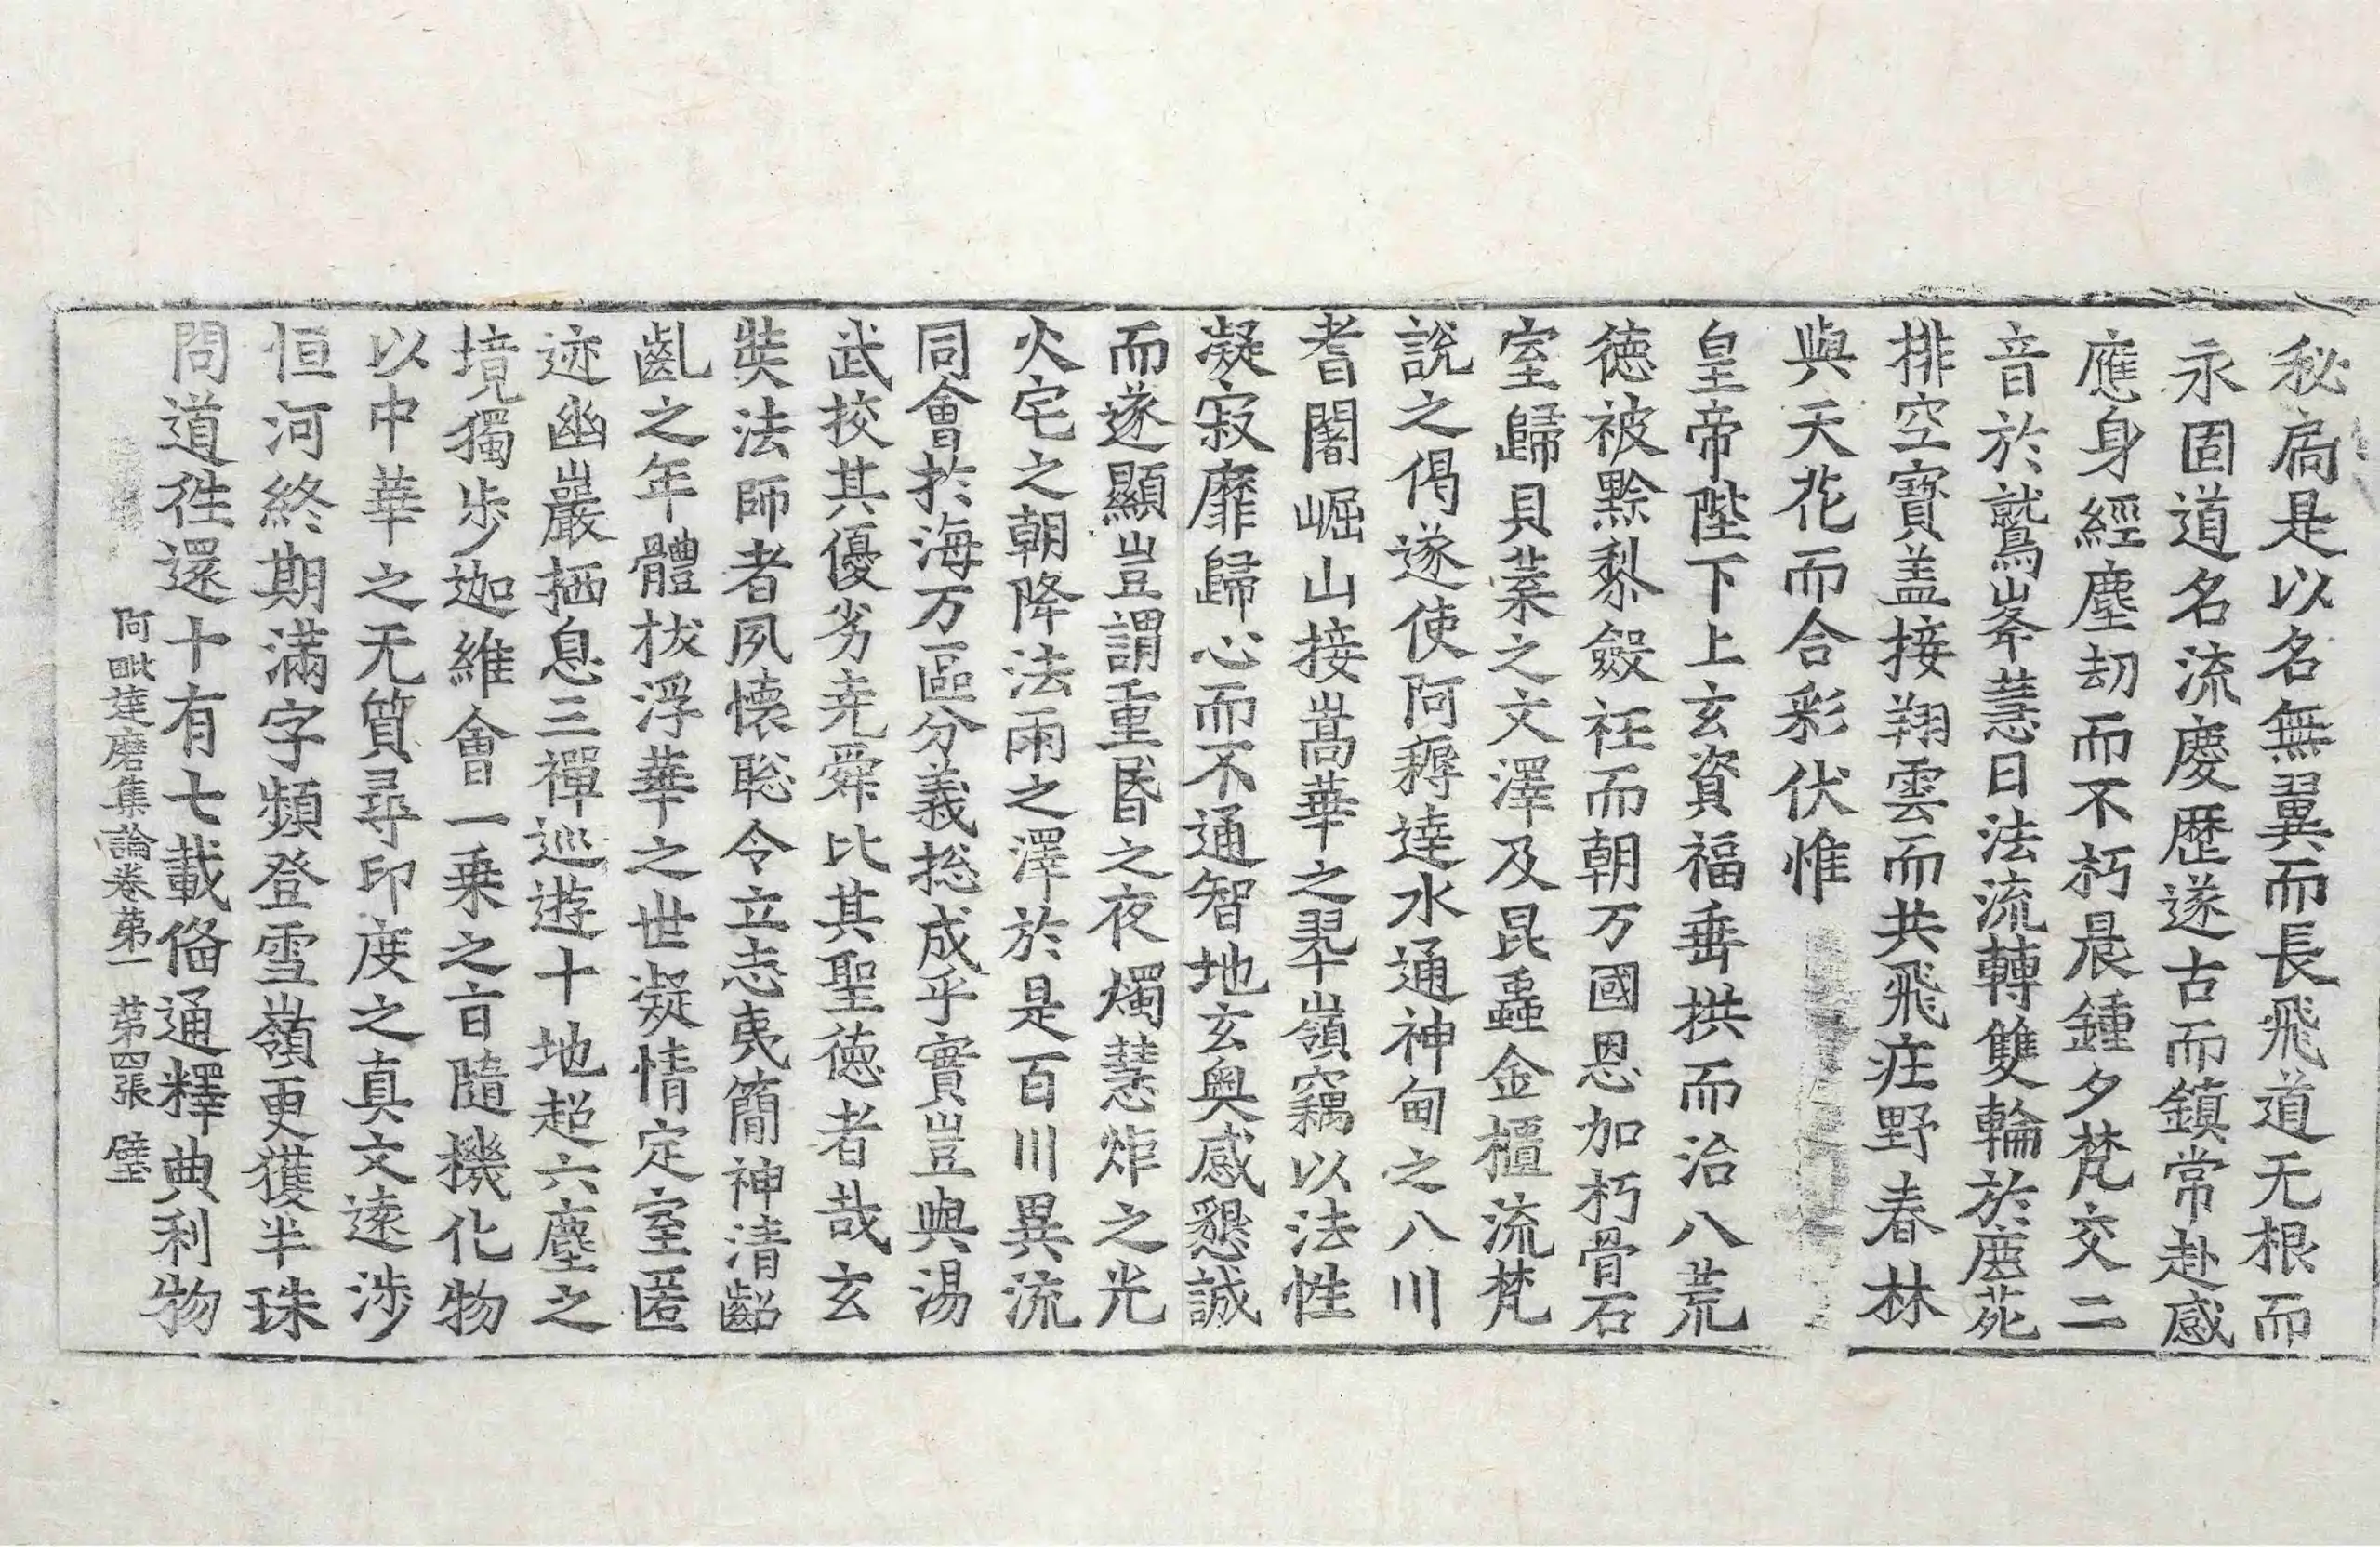 秘扃是以名無翼而長飛道无根而
永固道名流慶歷遂古而鎮常赴感
應身經塵劫而不朽晨鍾夕梵交二
音於鷲峯慧日法流轉雙輪於鹿菀
排空寶盖接翔雲而共飛庄野春林
與天花而合彩伏惟
皇帝陛下上玄資福垂拱而治八荒
德被黔黎斂衽而朝万國恩加朽骨石
室歸貝葉之文澤及昆蟲金樻流梵
說之偈遂使阿耨達水通神甸之八川
耆闍崛山接嵩華之翠嶺竊以法性
凝寂靡歸心而不通智地玄奧感懇誠
而遂顯豈謂重昏之夜燭慧炬之光
火宅之朝降法雨之澤於是百川異流
同會於海万區分義捴成乎實豈與湯
武挍其優劣尭舜比其聖德者哉玄
奘法師者夙懷聡令立志夷簡神清齠
齓之年體拔浮華之世凝情定室匿
迹幽巖栖息三禪巡遊十地超六塵之
境獨步迦維會一乗之旨隨機化物
以中華之无質尋印度之真文遠涉
恒河終期滿字頻登雪嶺更獲半珠
問道徃還十有七載俻通釋典利物
阿毗達磨集論卷苐一 苐四張 璧